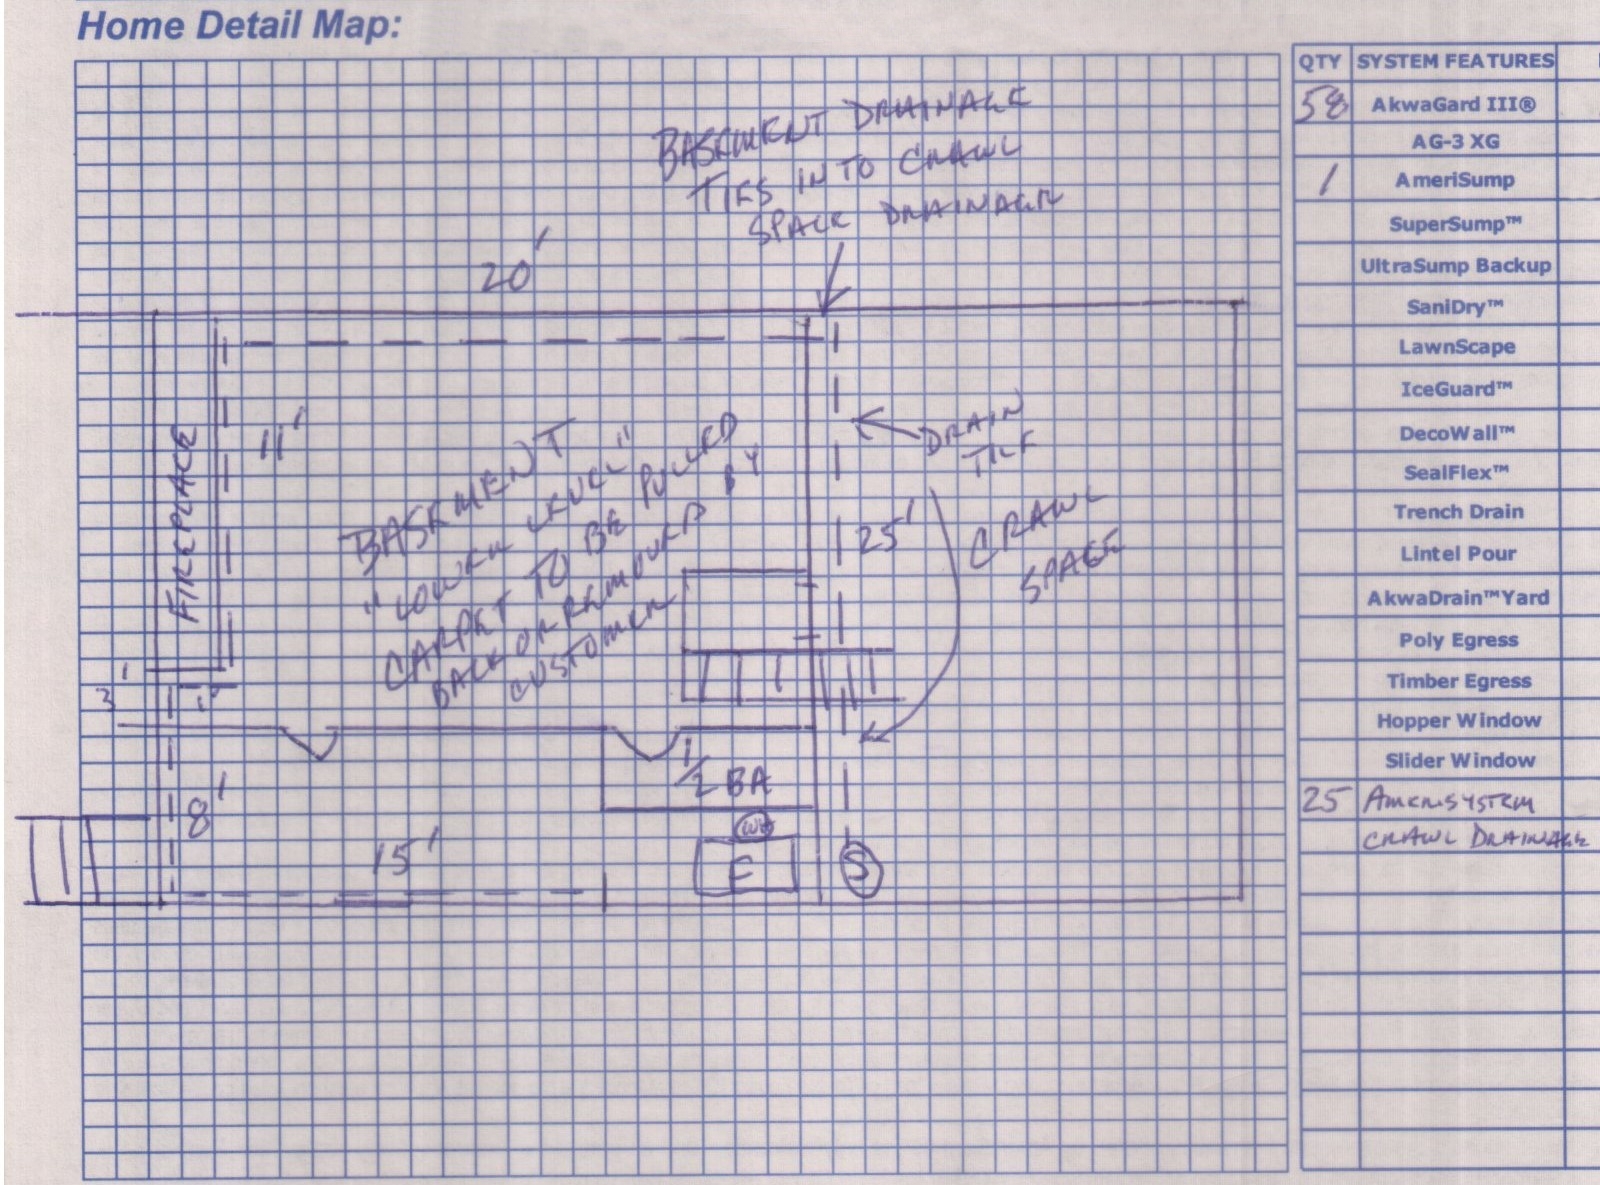 Home Detail Map:
BASEMENT DRAINAGE
TIES INTO CRAWL
SPACE DRAINAGE
20'
FIREPLACE
11'
BASEMENT
"LOWER LEVEL"
CARPET TO BE PULLED
BACK OR REMOVED BY
CUSTOMER
DRAIN
TILE
25'
CRAWL
SPACE
3'
1'
8'
15'
1/2 BA
WH
F
S
QTY SYSTEM FEATURES
58 AkwaGard III®
AG-3 XG
1 AmeriSump
SuperSump™
UltraSump Backup
SaniDry™
LawnScape
IceGuard™
DecoWall™
SealFlex™
Trench Drain
Lintel Pour
AkwaDrain™Yard
Poly Egress
Timber Egress
Hopper Window
Slider Window
25 AMERISYSTEM
CRAWL DRAINAGE